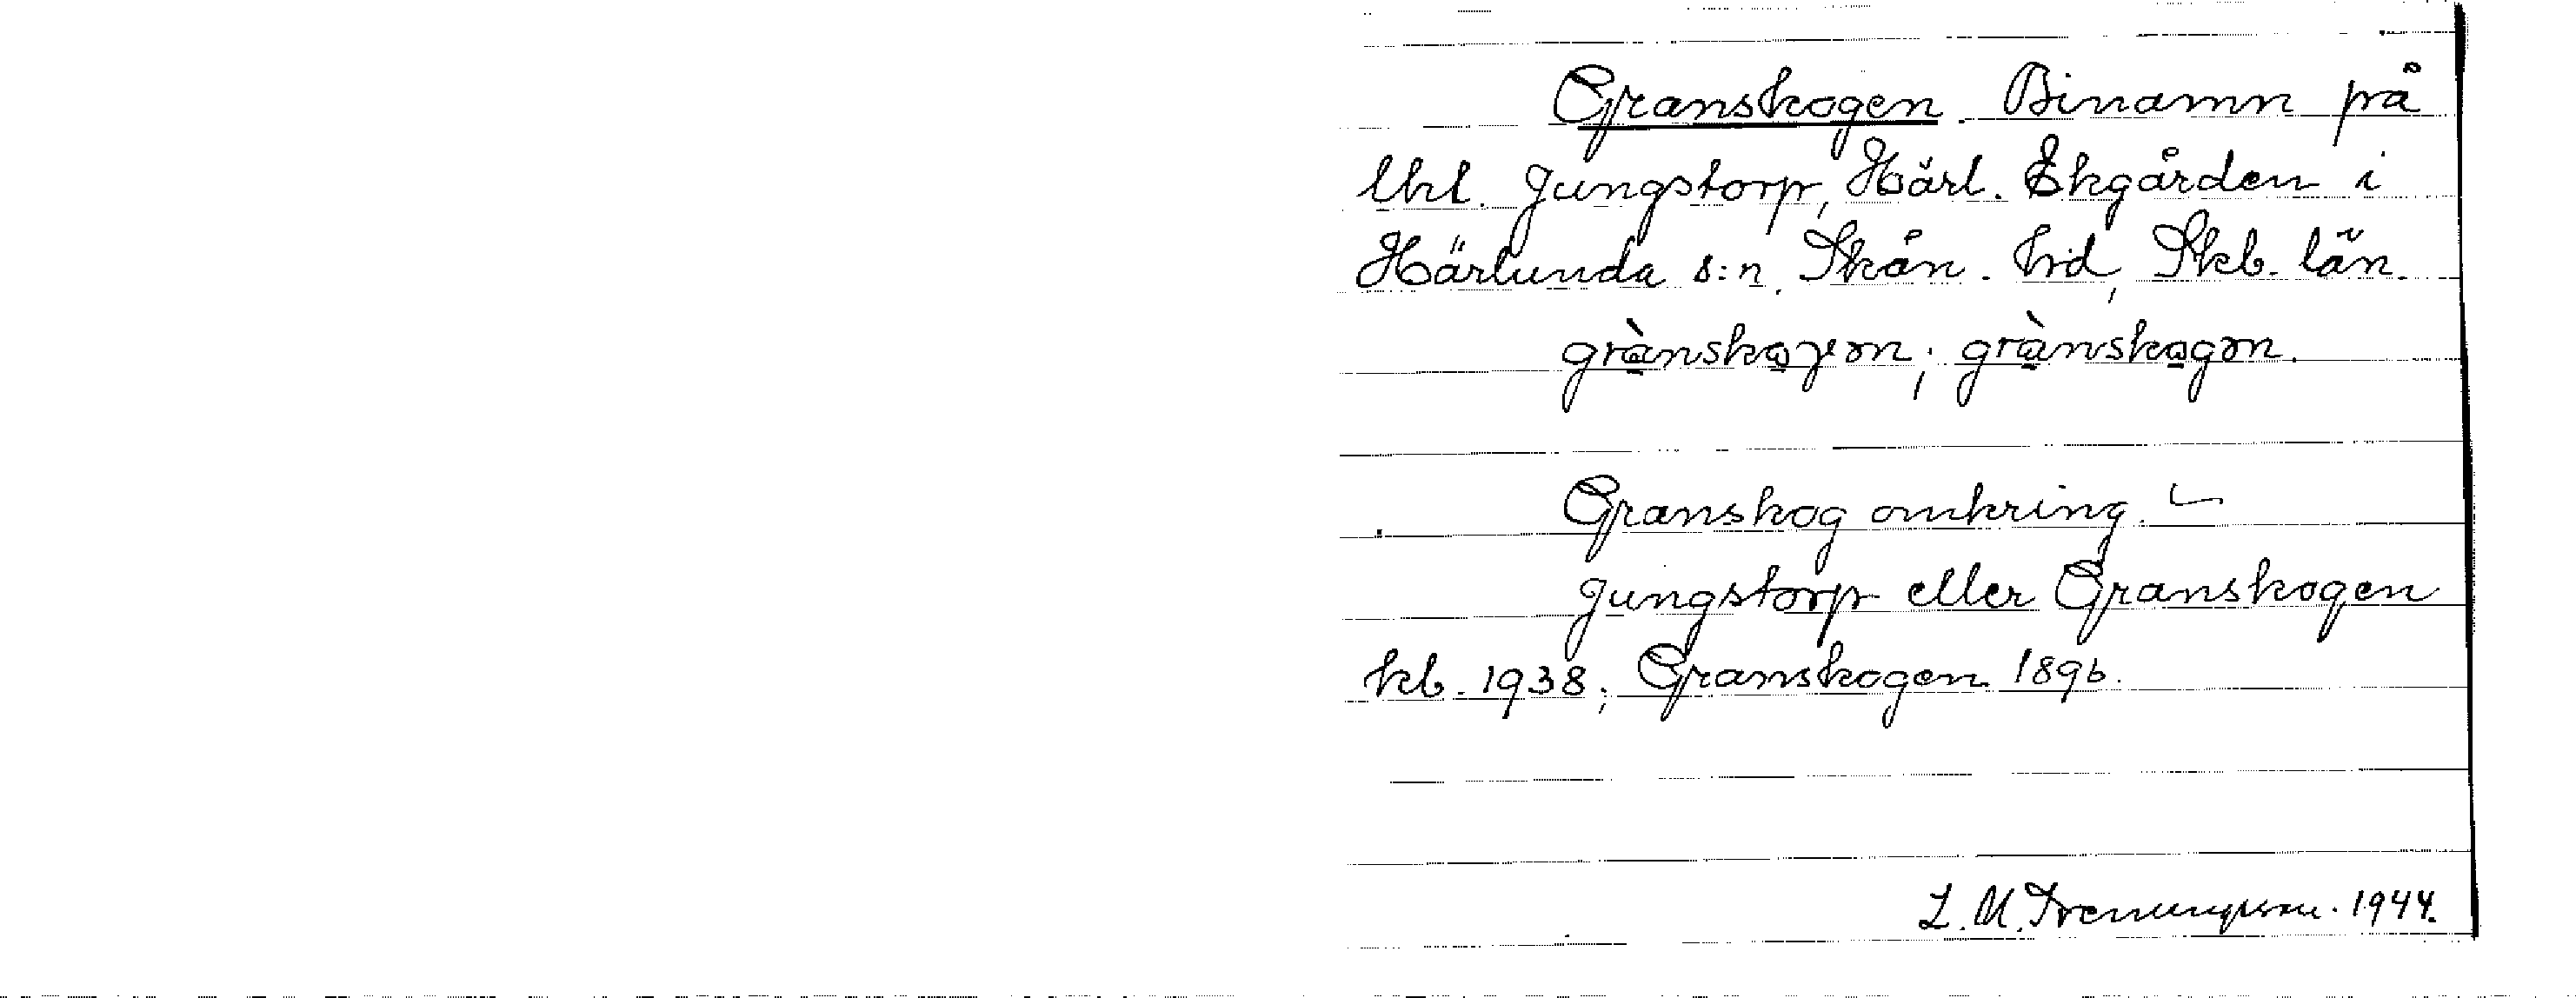 Granskogen. Binamn på
lht. Jungstorp, Härl. Ekgården i
Härlunda s:n, Skån. hd, Skb. län.
grànskoɣən; grànskogən.
Granskog omkring.
Jungstorp eller Granskogen
kb. 1938; Granskogen 1896.
L. M. 1944.